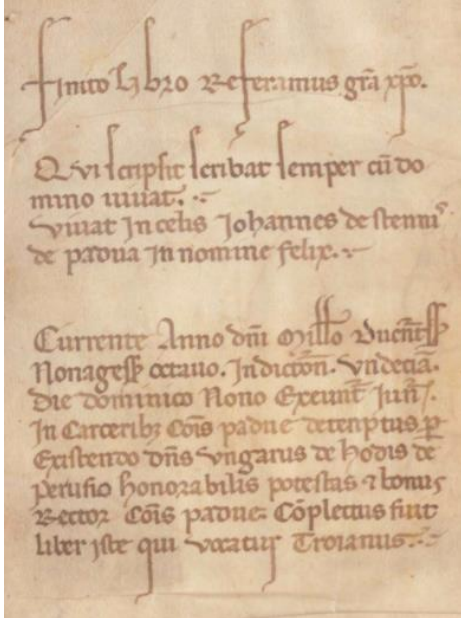 Finito libro Referamus grã xpõ.
Qui scripsit scribat semper cũ do
mino uiuat.
Viuat In celis Johannes de stennis
de padua In nomine felix.
Currente Anno dñi Millo Ducẽtss
Nonagess octauo. Indictoñ. Vndeciã.
die dominico Nono Exeunt̃ Juñ.
In Carceribꝫ Coĩs padue detenptus ꝑ
Existendo dñs Vngarus de hodis de
perusio honorabilis potestas ⁊ bonus
Rector Coĩs padue. Cõplectus fuit
liber iste qui vocatur Troianus.